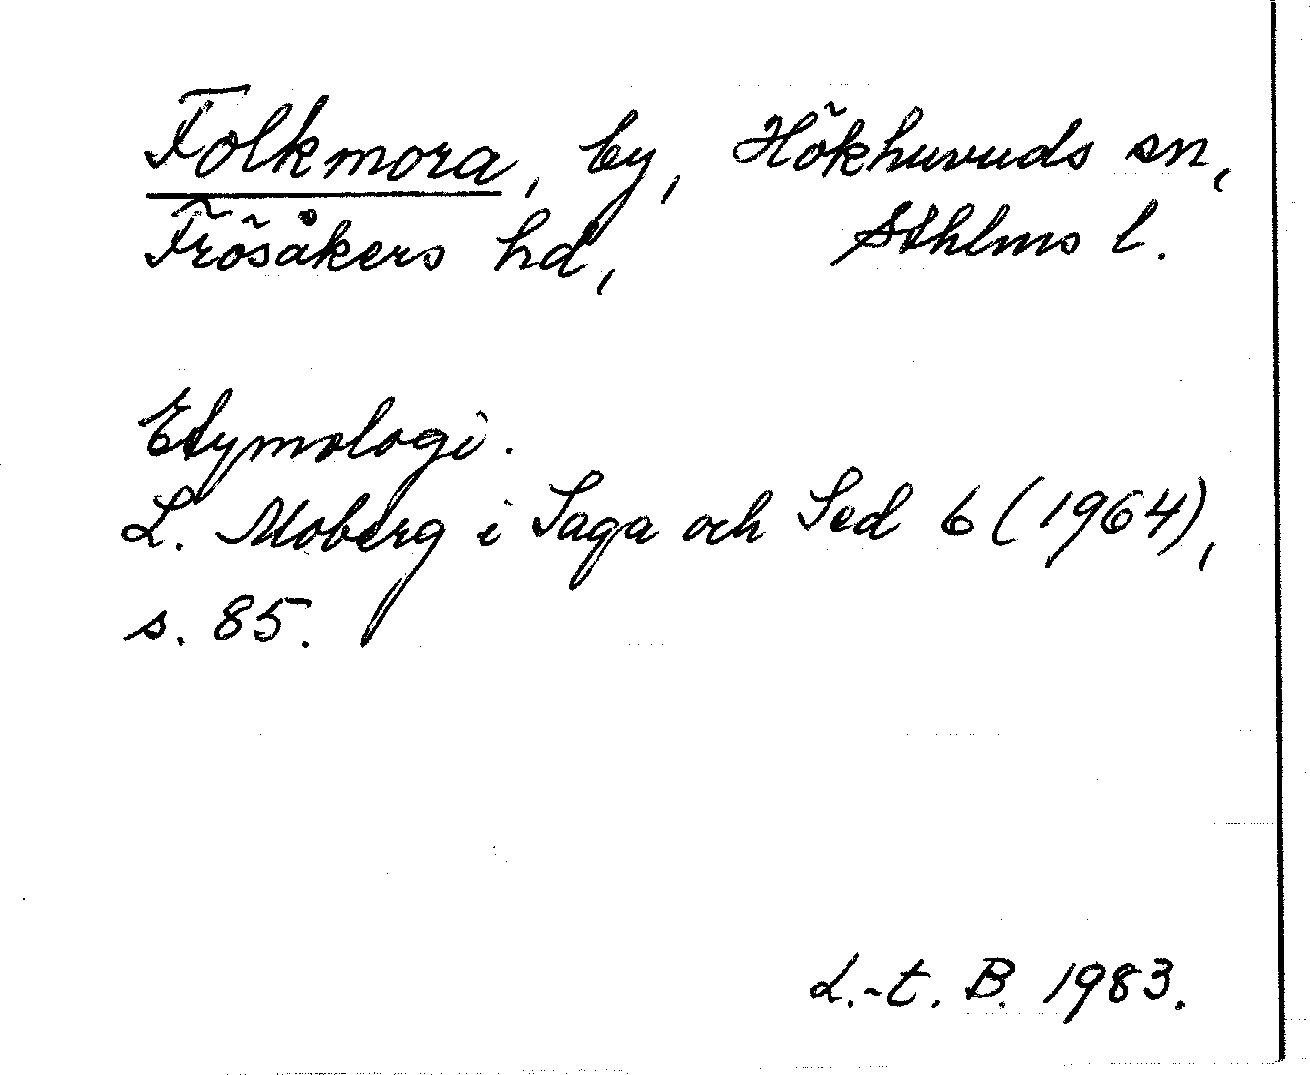 Folkmora, by, Hökhuvuds sn,
Frösåkers hd, Sthlms l.
Etymologi.
L. Moberg i Saga och Sed 6 (1964),
s. 85.
L.-t. B. 1983.